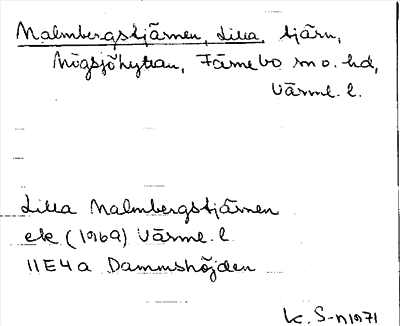 Malmbergstjärnen, Lilla, tjärn,
Högsjöhyttan, Färnebo sn o. hd,
Värml. l.
Lilla Malmbergstjärnen
ek (1969) Värml. l
11E4a Dammshöjden
K. S-n 1971